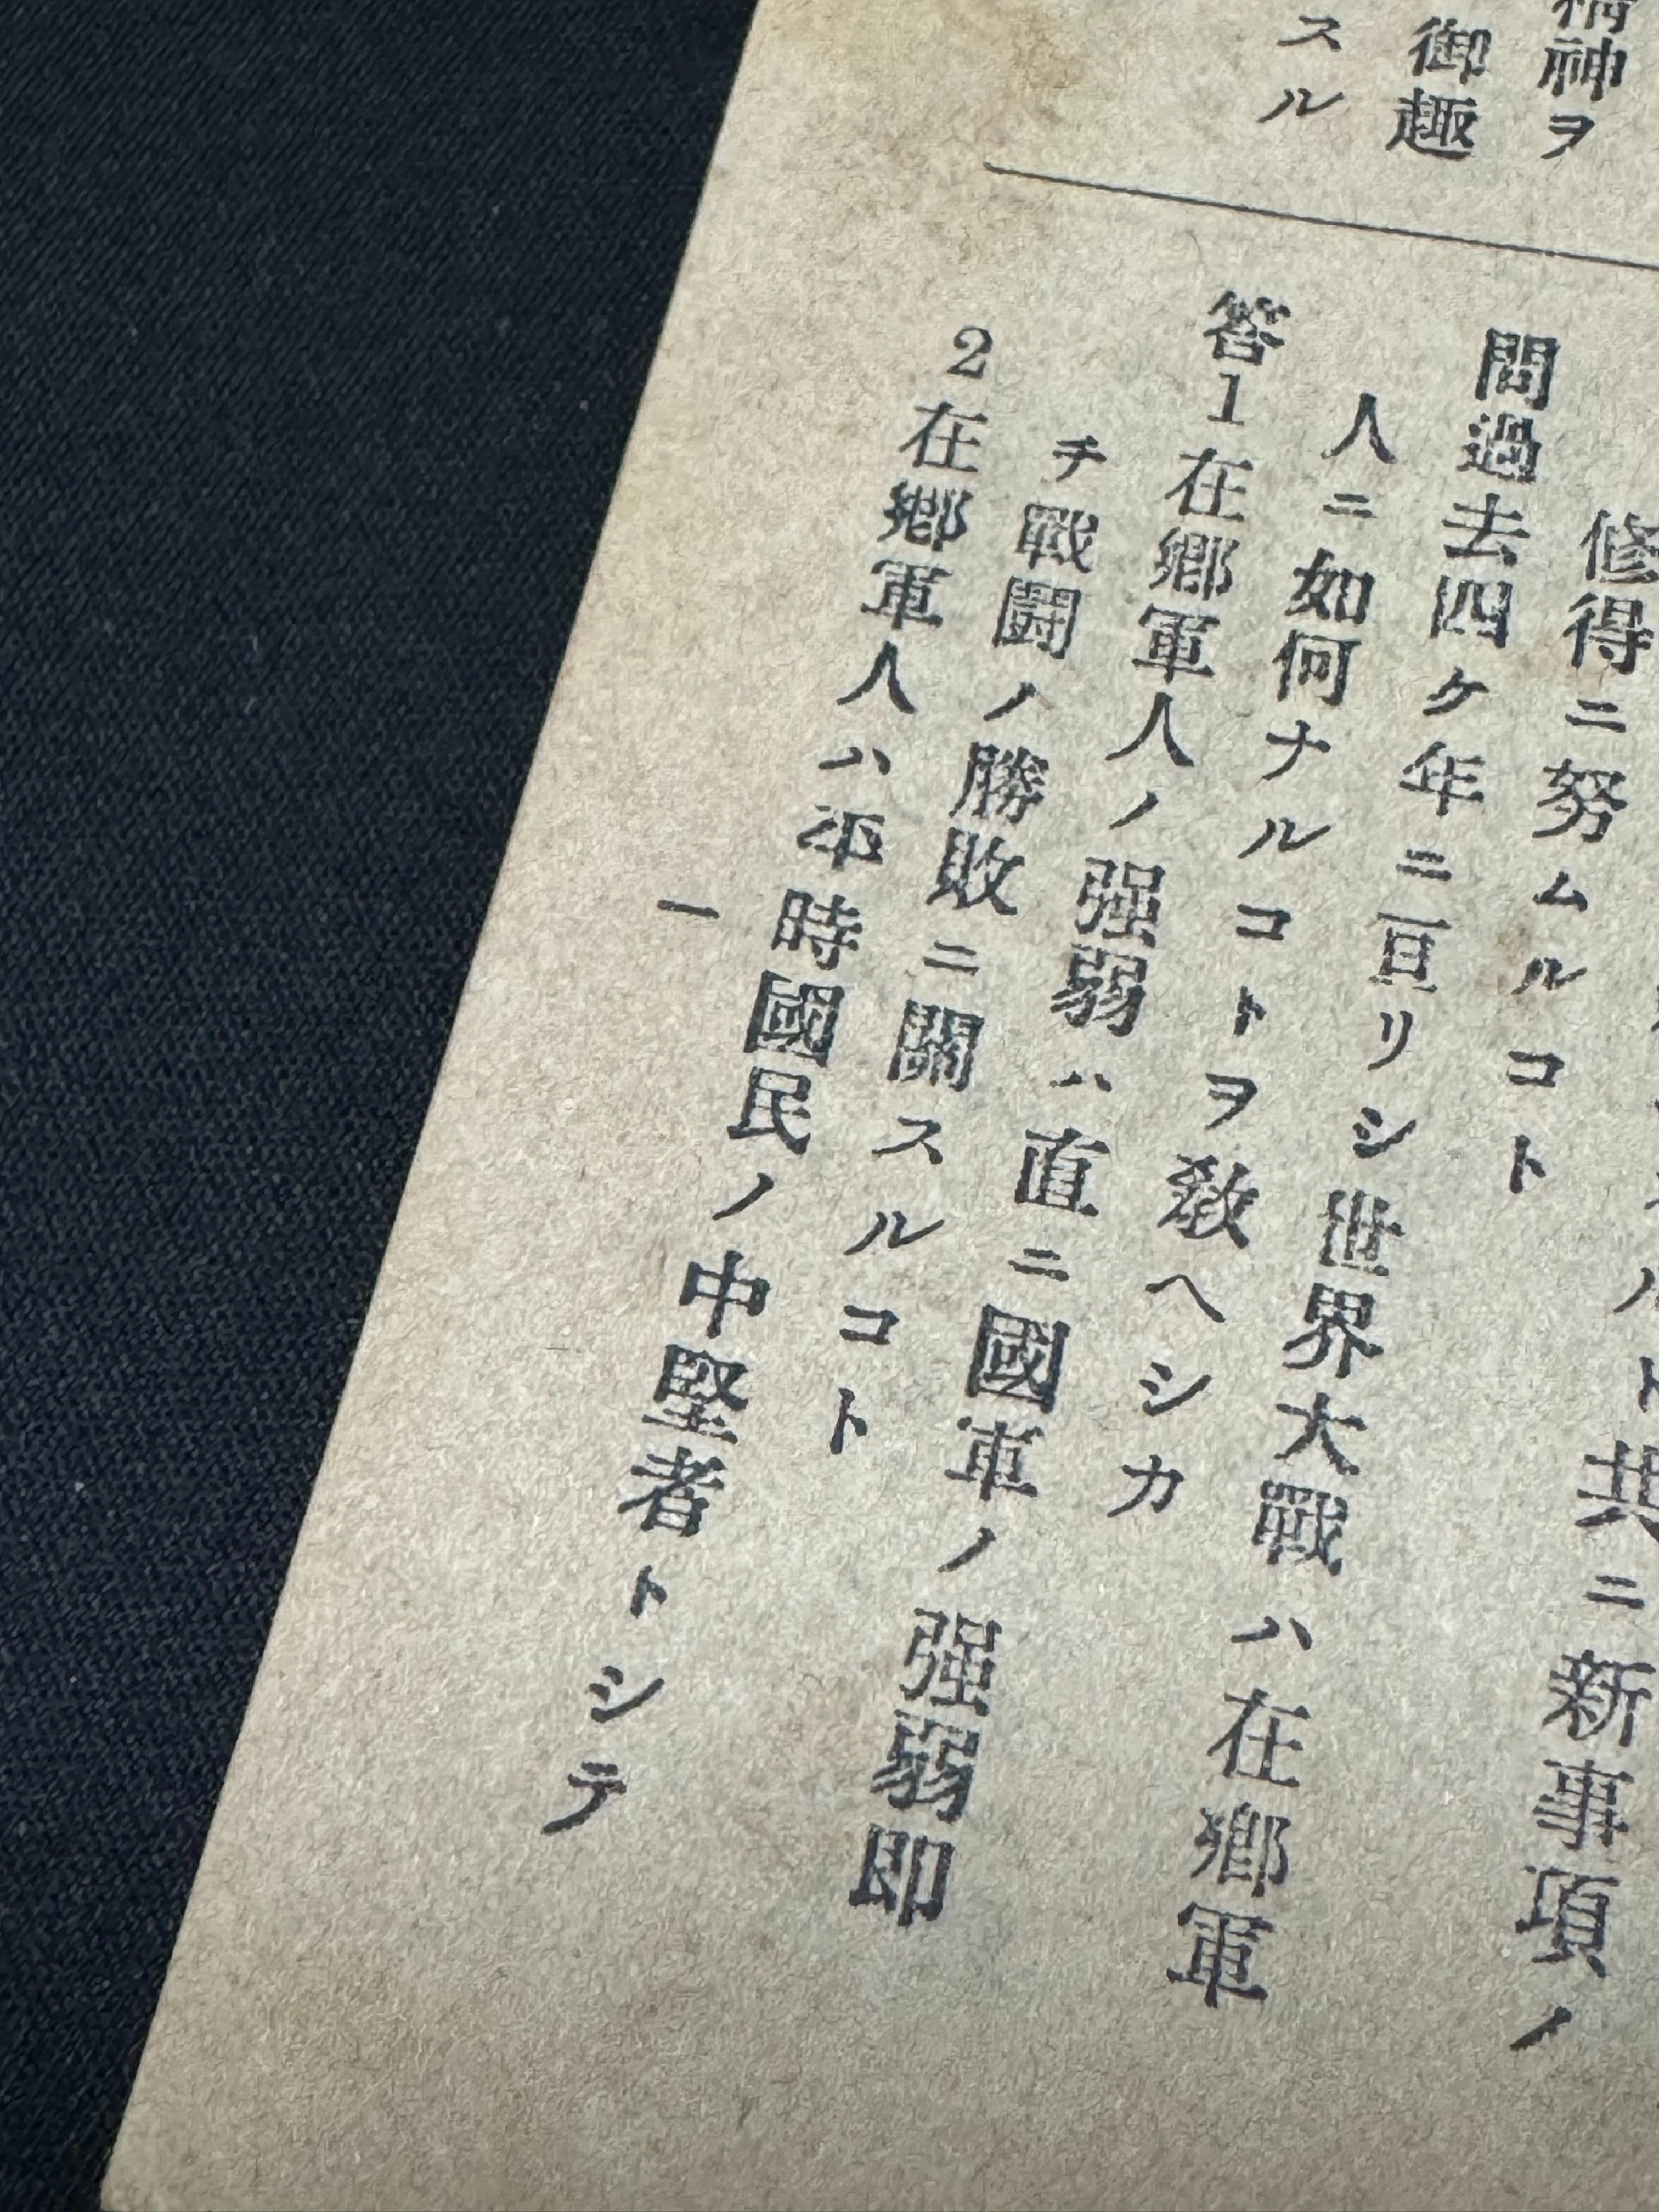 精神ヲ
御趣
スル
ルト共ニ新事項ノ
修得ニ努ムルコト
問過去四ケ年ニ亘リシ世界大戰ハ在鄕軍
人ニ如何ナルコトヲ敎ヘシカ
答1在鄕軍人ノ强弱ハ直ニ國軍ノ强弱即
チ戰鬪ノ勝敗ニ關スルコト
2在鄕軍人ハ平時國民ノ中堅者トシテ
一